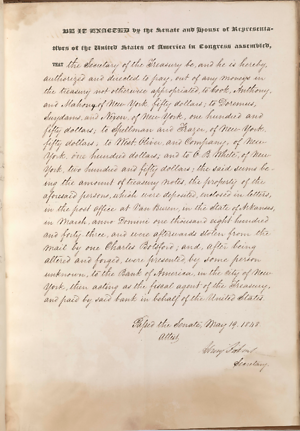 BE IT ENACTED by the Senate and House of Representa-
tives of the United States of America in Congress assembled,
THAT the Secretary of the Treasury be, and he is hereby,
authorized and directed to pay, out of any moneys in
the treasury not otherwise appropriated, to Cook, Anthony,
and Mahony, of New York, fifty dollars; to Doremus,
Suydams, and Nixon, of New York, one hundred and
fifty dollars; to Spellman and Frazer, of New York,
fifty dollars; to West, Oliver, and Company, of New
York, one hundred dollars; and to C. B. White, of New
York, two hundred and fifty dollars; the said sums be-
ing the amount of treasury notes, the property of the
aforesaid persons, which were deposited, enclosed in letters,
in the post office at Van Buren, in the State of Arkansas,
in March, anno Domini one thousand eight hundred
and forty three, and were afterwards stolen from the
mail by one Charles Botsford; and, after being
altered and forged, were presented, by some person
unknown, to the Bank of America, in the city of New
York, then acting as the fiscal agent of the Treasury,
and paid by said bank in behalf of the United States.
Passed the Senate, May 19, 1848
Attest,
Secretary